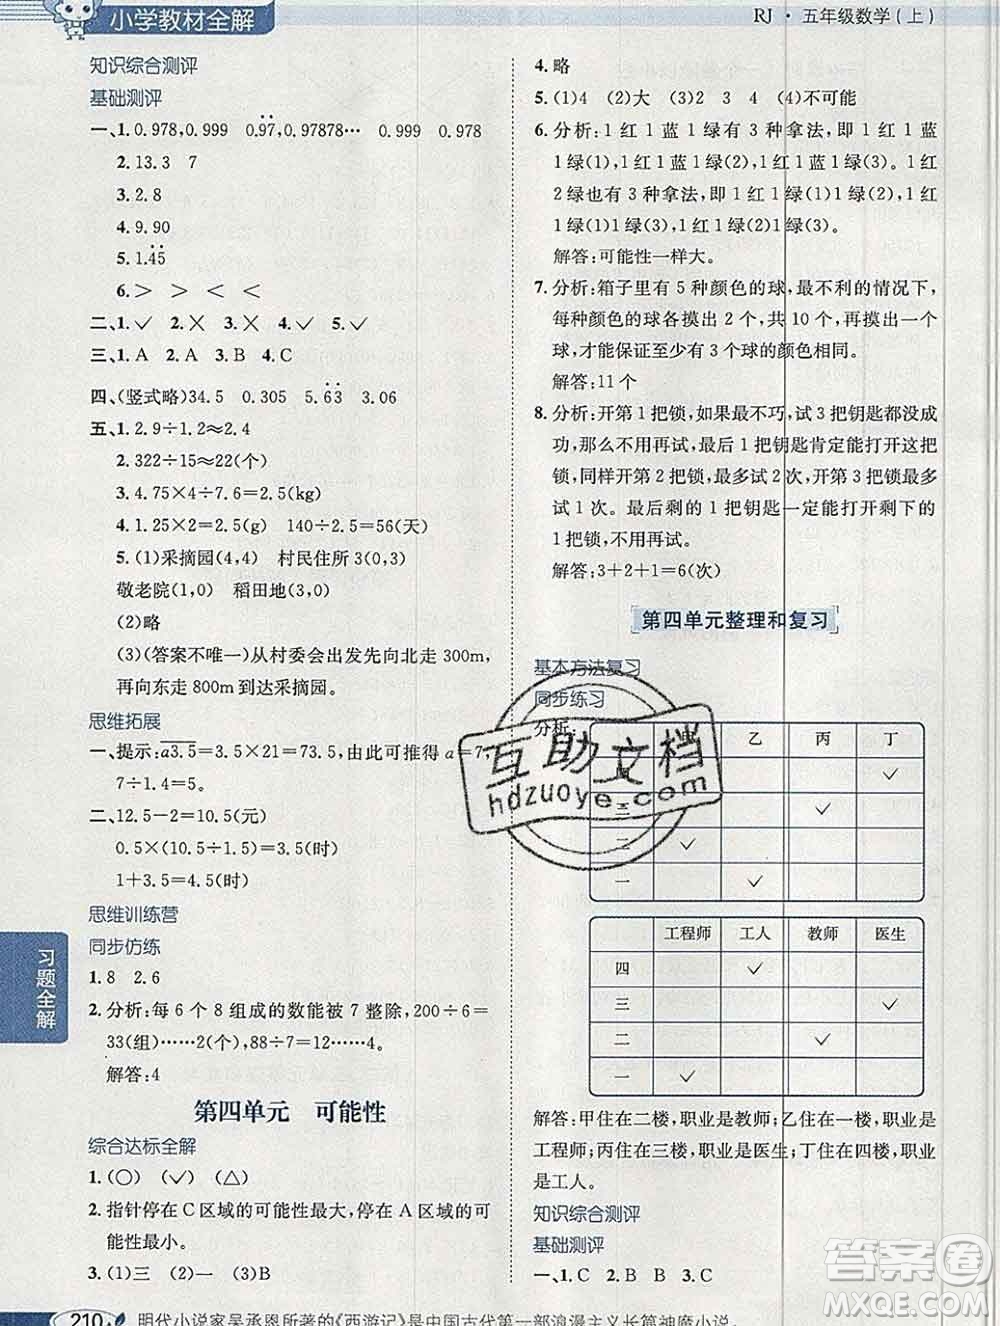 小学教材全解
RJ · 五年级数学(上)
知识综合测评
基础测评
一、1. 0.978,0.999 0.9̇7̇,0.97878… 0.978,0.999
2. 13.3 7
3. 2.8
4. 9.90
5. 1.4̇5̇
6. > > < <
二、1. ✓ 2. ✕ 3. ✕ 4. ✓ 5. ✓
三、1. A 2. A 3. B 4. C
四、(竖式略)34.5 0.305 5.6̇3̇ 3.06
五、1. 2.9÷1.2≈2.4
2. 322÷15≈22(个)
3. 4.75×4÷7.6=2.5(kg)
4. 1.25×2=2.5(g) 140÷2.5=56(天)
5. (1)采摘园(4,4) 村民住所3(0,3)
敬老院(1,0) 稻田地(3,0)
(2)略
(3)(答案不唯一)从村委会出发先向北走 300m,
再向东走 800m 到达采摘园。
思维拓展
一、提示:a3.5=3.5×21=73.5,由此可推得 a=7,
7÷1.4=5。
二、12.5-2=10.5(元)
0.5×(10.5÷1.5)=3.5(时)
1+3.5=4.5(时)
思维训练营
同步仿练
1. 8 2. 6
2. 分析:每 6 个 8 组成的数能被 7 整除,200÷6=
33(组)……2(个),88÷7=12……4
解答:4
第四单元 可能性
综合达标全解
1. (○) (✓) (△)
2. 指针停在 C 区域的可能性最大,停在 A 区域的可
能性最小。
3. (1)三 (2)一 (3)B
习题全解
210 明代小说家吴承恩所著的《西游记》是中国古代第一部浪漫主义长篇神魔小说。
4. 略
5. (1)4 (2)大 (3)2 3 4 (4)不可能
6. 分析:1 红 1 蓝 1 绿有 3 种拿法,即 1 红 1 蓝
1 绿(1)、1 红 1 蓝 1 绿(2)、1 红 1 蓝 1 绿(3);1 红
2 绿也有 3 种拿法,即 1 红 1 绿(1)1 绿(2)、1 红
1 绿(1)1 绿(3)、1 红 1 绿(2)1 绿(3)。
解答:可能性一样大。
7. 分析:箱子里有 5 种颜色的球,最不利的情况下,
每种颜色的球各摸出 2 个,共 10 个,再摸出 1 个
球,才能保证至少有 3 个球的颜色相同。
解答:11 个
8. 分析:开第 1 把锁,如果最不巧,试 3 把钥匙都没成
功,那么不用再试,最后 1 把钥匙肯定能打开这把
锁,同样开第 2 把锁,最多试 2 次,开第 3 把锁最多
试 1 次,最后剩的 1 把钥匙一定能打开剩的 1 把
锁,不用再试。
解答:3+2+1=6(次)
第四单元整理和复习
基本方法复习
同步练习
分析:
乙 丙 丁
四 ✓
三 ✓
二 ✓
一 ✓
工程师 工人 教师 医生
四 ✓
三 ✓
二 ✓
一 ✓
解答:甲住在二楼,职业是教师;乙住在一楼,职业是
工程师;丙住在三楼,职业是医生;丁住在四楼,职业
是工人。
知识综合测评
基础测评
一、1. C 2. B 3. C 4. C
互助文档
hdzuoye.com
答案圈
MXQE.COM